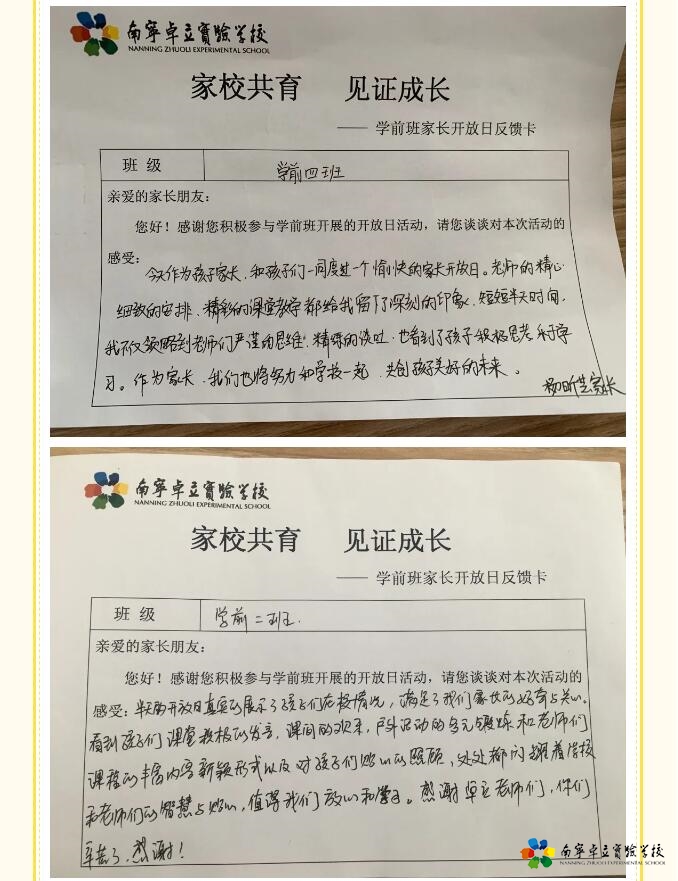 南寧卓立實驗学校
NANNING ZHUOLI EXPERIMENTAL SCHOOL
家校共育 见证成长
—— 学前班家长开放日反馈卡
班 级 学前四班
亲爱的家长朋友：
您好！感谢您积极参与学前班开展的开放日活动，请您谈谈对本次活动的
感受：
今天作为孩子家长，和孩子们一同度过一个愉快的家长开放日。老师的精心
细致的安排，精彩的课堂教学都给我留下了深刻的印象，短短半天时间，
我不仅领略到老师们严谨的思维，精辟的谈吐，也看到了孩子积极思考，乐于学
习。作为家长，我们也将努力和学校一起，共创孩子美好的未来。
家长
南寧卓立實驗学校
NANNING ZHUOLI EXPERIMENTAL SCHOOL
家校共育 见证成长
—— 学前班家长开放日反馈卡
班 级 学前二班.
亲爱的家长朋友：
您好！感谢您积极参与学前班开展的开放日活动，请您谈谈对本次活动的
感受：半天的开放日真实的展示了孩子们在校情况，满足了我们家长的好奇与关心。
看到孩子们课堂积极的发言，课间的欢乐，户外活动的多元锻炼和老师们
课程的丰富内容新颖形式以及对孩子们贴心的照顾，处处都闪耀着学校
和老师们的智慧与贴心，值得我们放心和学习。感谢卓立老师们，你们
辛苦了，感谢！
南寧卓立實驗学校
NANNING ZHUOLI EXPERIMENTAL SCHOOL